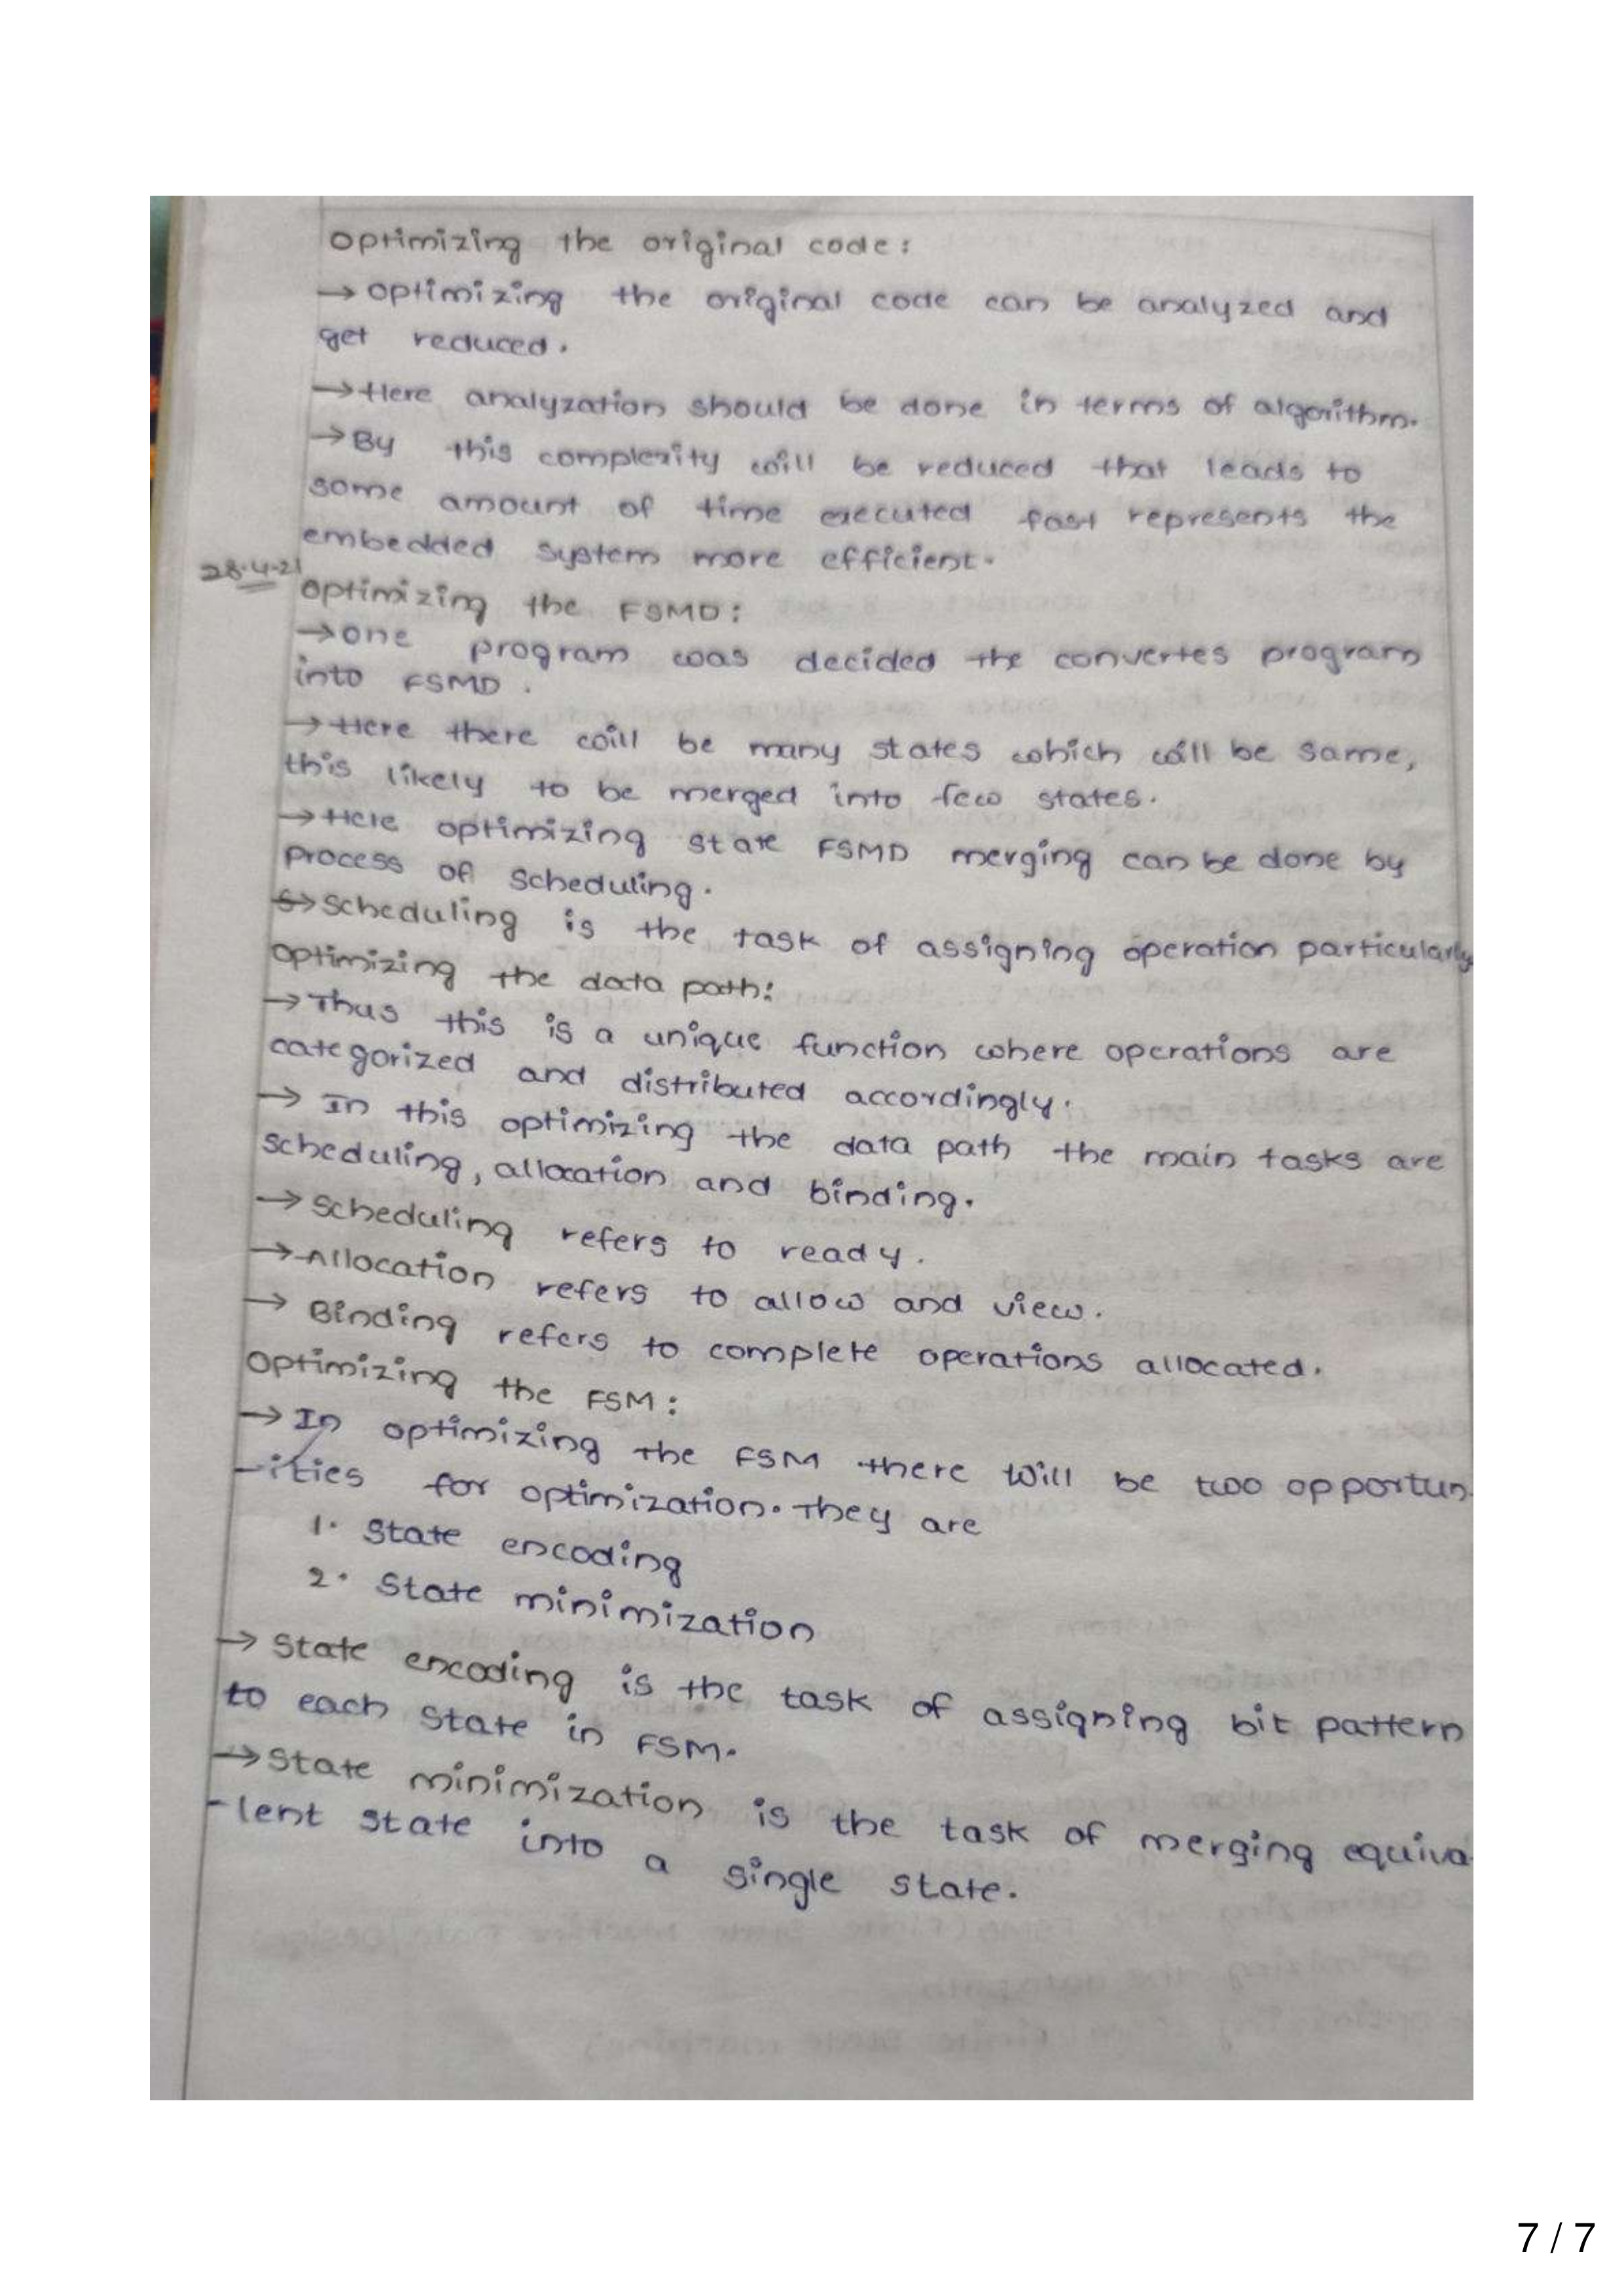 Optimizing the original code:
→ optimizing the original code can be analyzed and
get reduced.
→ Here analyzation should be done in terms of algorithm.
→ By this complexity will be reduced that leads to
some amount of time executed fast represents the
embedded system more efficient.
28.4.21
Optimizing the FSMD:
→ one program was decided the convertes program
into FSMD.
→ Here there will be many states which will be same,
this likely to be merged into few states.
→ Here optimizing state FSMD merging can be done by
process of scheduling.
→ Scheduling is the task of assigning operation particularly
Optimizing the data path:
→ Thus this is a unique function where operations are
categorized and distributed accordingly.
→ In this optimizing the data path the main tasks are
scheduling, allocation and binding.
→ Scheduling refers to ready.
→ Allocation refers to allow and view.
→ Binding refers to complete operations allocated.
Optimizing the FSM:
→ In optimizing the FSM there will be two opportun-
-ities for optimization. They are
1. State encoding
2. State minimization
→ State encoding is the task of assigning bit pattern
to each state in FSM.
→ State minimization is the task of merging equiva-
-lent state into a single state.
7 / 7